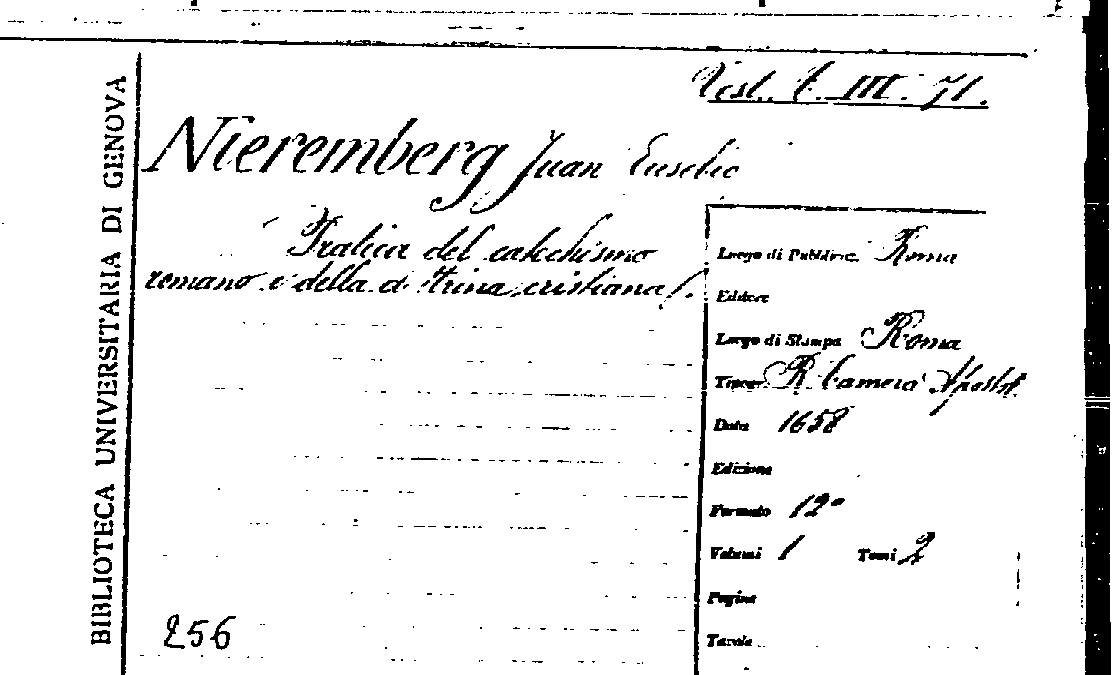 BIBLIOTECA UNIVERSITARIA DI GENOVA
III. 71.
Nieremberg Juan Eusebio
Pratica del catechismo
romano e della dottrina cristiana /.
Luogo di Pubblic. Roma
Editore
Luogo di Stampa Roma
R. Camera Apost.
Data 1658
Edizione
Formato 12°
Volumi 1 Tomi 2
Pagine
Tavole
256